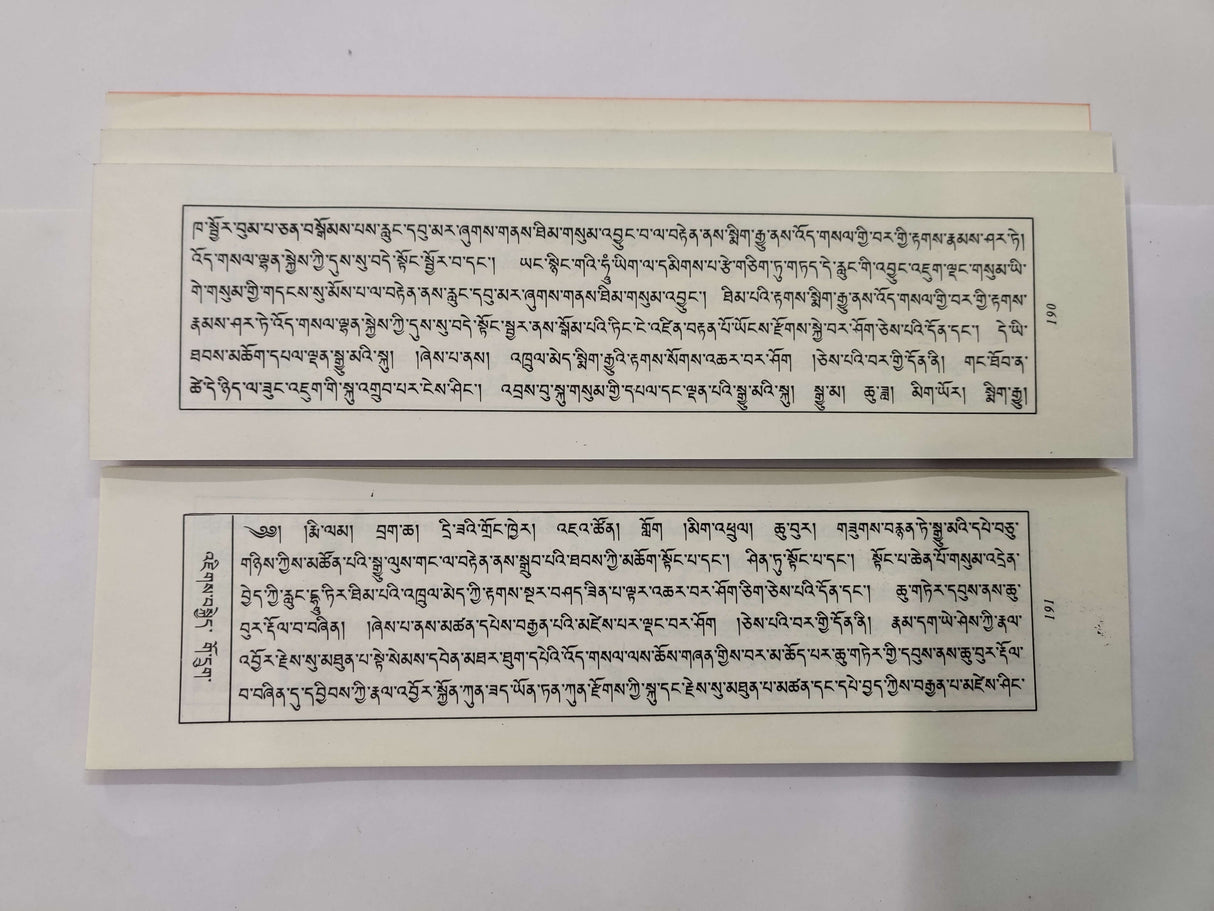 ཁ་སྦྱོར་བུམ་པ་ཅན་བསྒོམས་པས་རླུང་དབུ་མར་ཞུགས་གནས་ཐིམ་གསུམ་འབྱུང་བ་ལ་བརྟེན་ནས་སྨིག་རྒྱུ་ནས་འོད་གསལ་གྱི་བར་གྱི་རྟགས་རྣམས་ཤར་ཏེ།
འོད་གསལ་ལྷན་སྐྱེས་ཀྱི་དུས་སུ་བདེ་སྟོང་སྦྱོར་བ་དང་། ཡང་སྙིང་གའི་ཧཱུྃ་ཡིག་ལ་དམིགས་པ་རྩེ་གཅིག་ཏུ་གཏད་དེ་རླུང་གི་འབྱུང་འཇུག་ལྡང་གསུམ་ཡི་
གེ་གསུམ་གྱི་གདངས་སུ་མོས་པ་ལ་བརྟེན་ནས་རླུང་དབུ་མར་ཞུགས་གནས་ཐིམ་གསུམ་འབྱུང་། ཐིམ་པའི་རྟགས་སྨིག་རྒྱུ་ནས་འོད་གསལ་གྱི་བར་གྱི་རྟགས་
རྣམས་ཤར་ཏེ་འོད་གསལ་ལྷན་སྐྱེས་ཀྱི་དུས་སུ་བདེ་སྟོང་སྦྱར་ནས་སྒོམ་པའི་ཏིང་ངེ་འཛིན་བརྟན་པོ་ཡོངས་རྫོགས་སྐྱེ་བར་ཤོག་ཅེས་པའི་དོན་དང་། དེ་ཡི་
ཐབས་མཆོག་དཔལ་ལྡན་སྒྱུ་མའི་སྐུ། །ཞེས་པ་ནས། འཁྲུལ་མེད་སྨིག་རྒྱུའི་རྟགས་སོགས་འཆར་བར་ཤོག །ཅེས་པའི་བར་གྱི་དོན་ནི། གང་ཐོབ་ན་
ཚེ་དེ་ཉིད་ལ་ཟུང་འཇུག་གི་སྐུ་འགྲུབ་པར་ངེས་ཤིང་། འབྲས་བུ་སྐུ་གསུམ་གྱི་དཔལ་དང་ལྡན་པའི་སྒྱུ་མའི་སྐུ། སྒྱུ་མ། ཆུ་ཟླ། མིག་ཡོར། སྨིག་རྒྱུ།
160
༄༅། །རྨི་ལམ། བྲག་ཆ། དྲི་ཟའི་གྲོང་ཁྱེར། འཇའ་ཚོན། གློག །མིག་འཕྲུལ། ཆུ་བུར། གཟུགས་བརྙན་ཏེ་སྒྱུ་མའི་དཔེ་བཅུ་
གཉིས་ཀྱིས་མཚོན་པའི་སྒྱུ་ལུས་གང་ལ་བརྟེན་ནས་སྒྲུབ་པའི་ཐབས་ཀྱི་མཆོག་སྟོང་པ་དང་། ཤིན་ཏུ་སྟོང་པ་དང་། སྟོང་པ་ཆེན་པོ་གསུམ་འདྲེན་
བྱེད་ཀྱི་རླུང་དྷཱུ་ཏིར་ཐིམ་པའི་འཁྲུལ་མེད་ཀྱི་རྟགས་སྔར་བཤད་ཟིན་པ་ལྟར་འཆར་བར་ཤོག་ཅིག་ཅེས་པའི་དོན་དང་། ཆུ་གཏེར་དབུས་ནས་ཆུ་
བུར་རྡོལ་བ་བཞིན། །ཞེས་པ་ནས་མཚན་དཔེས་བརྒྱན་པའི་མཛེས་པར་ལྡང་བར་ཤོག །ཅེས་པའི་བར་གྱི་དོན་ནི། རྣམ་དག་ཡེ་ཤེས་ཀྱི་རྣལ་
འབྱོར་རྗེས་སུ་མཐུན་པ་སྟེ་སེམས་དབེན་མཐར་ཐུག་དཔེའི་འོད་གསལ་ལས་ཆོས་གཞན་གྱིས་བར་མ་ཆོད་པར་ཆུ་གཏེར་གྱི་དབུས་ནས་ཆུ་བུར་རྡོལ་
བ་བཞིན་དུ་དབྱིབས་ཀྱི་རྣལ་འབྱོར་སྐྱོན་ཀུན་ཟད་ཡོན་ཏན་ཀུན་རྫོགས་ཀྱི་སྐུ་དང་རྗེས་སུ་མཐུན་པ་མཚན་དང་དཔེ་བྱད་ཀྱིས་བརྒྱན་པ་མཛེས་ཤིང་
161